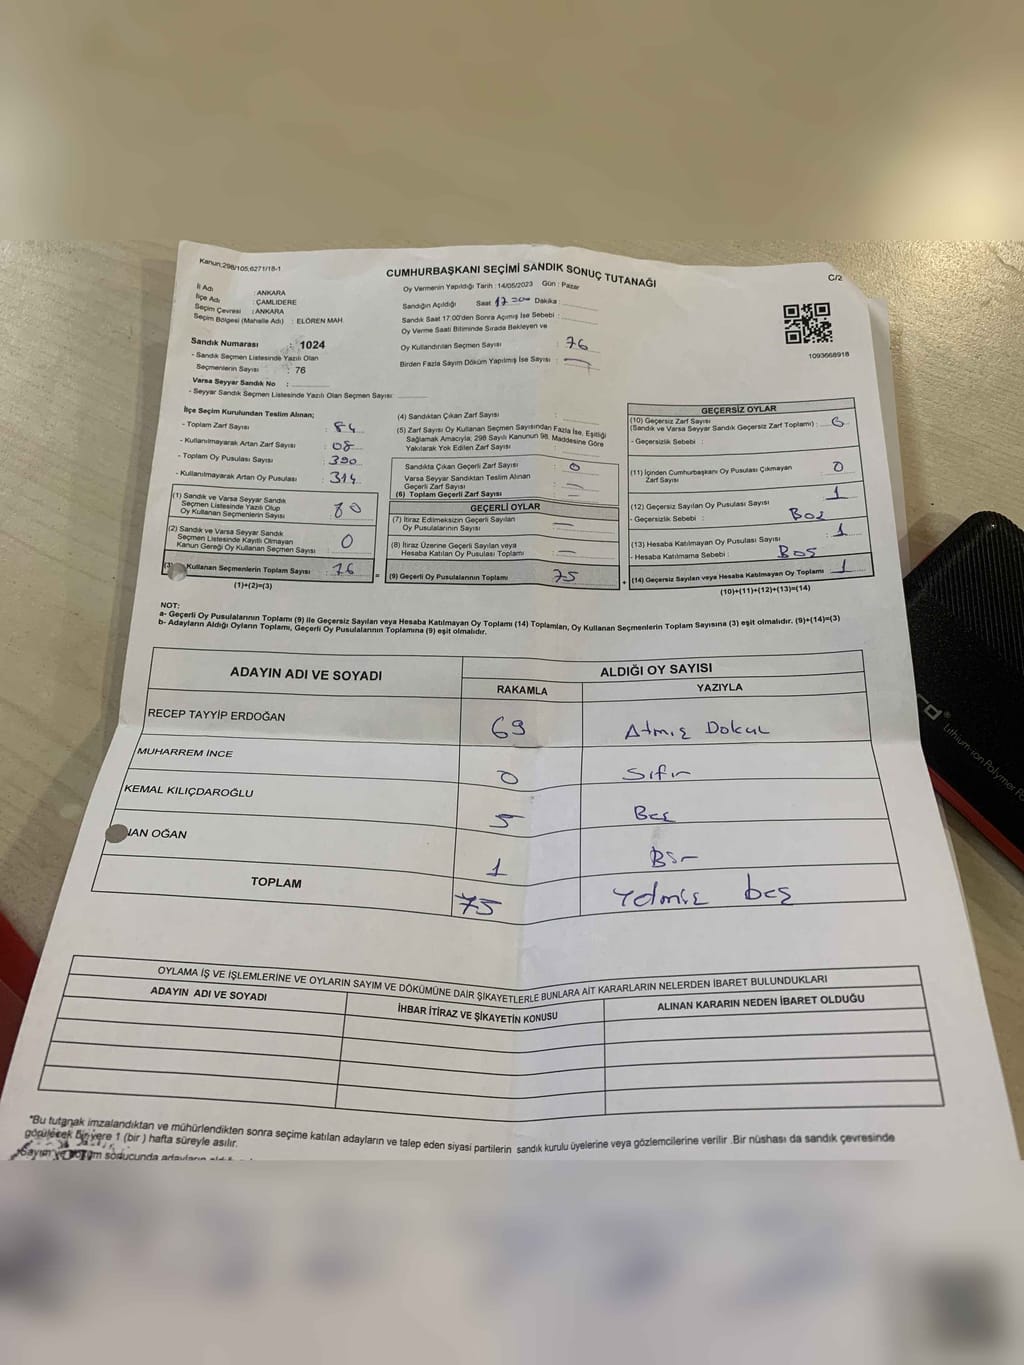 Kanun;298/105;6271/18-1
CUMHURBAŞKANI SEÇİMİ SANDIK SONUÇ TUTANAĞI
C/2
İl Adı : ANKARA
İlçe Adı : ÇAMLIDERE
Seçim Çevresi : ANKARA
Seçim Bölgesi (Mahalle Adı) : ELÖREN MAH.
Sandık Numarası : 1024
- Sandık Seçmen Listesinde Yazılı Olan
Seçmenlerin Sayısı : 76
Varsa Seyyar Sandık No :
- Seyyar Sandık Seçmen Listesinde Yazılı Olan Seçmen Sayısı:
Oy Vermenin Yapıldığı Tarih : 14/05/2023 Gün : Pazar
Sandığın Açıldığı Saat 17 Dakika :
Sandık Saat 17:00'den Sonra Açımış İse Sebebi :
Oy Verme Saati Bitiminde Sırada Bekleyen ve
Oy Kullandırılan Seçmen Sayısı : 76
Birden Fazla Sayım Döküm Yapılmış İse Sayısı : —
1093668918
İlçe Seçim Kurulundan Teslim Alınan;
- Toplam Zarf Sayısı : 84
- Kullanılmayarak Artan Zarf Sayısı : 08
- Toplam Oy Pusulası Sayısı : 390
- Kullanılmayarak Artan Oy Pusulası : 314
(1) Sandık ve Varsa Seyyar Sandık
Seçmen Listesinde Yazılı Olup
Oy Kullanan Seçmenlerin Sayısı
(2) Sandık ve Varsa Seyyar Sandık
Seçmen Listesinde Kayıtlı Olmayan
Kanun Gereği Oy Kullanan Seçmen Sayısı : 0
(3) Kullanan Seçmenlerin Toplam Sayısı : 76
(1)+(2)=(3)
(4) Sandıktan Çıkan Zarf Sayısı :
(5) Zarf Sayısı Oy Kullanan Seçmen Sayısından Fazla İse, Eşitliği
Sağlamak Amacıyla; 298 Sayılı Kanunun 98. Maddesine Göre
Yakılarak Yok Edilen Zarf Sayısı :
Sandıkta Çıkan Geçerli Zarf Sayısı : 0
Varsa Seyyar Sandıktan Teslim Alınan
Geçerli Zarf Sayısı : —
(6) Toplam Geçerli Zarf Sayısı : —
GEÇERLİ OYLAR
(7) İtiraz Edilmeksizin Geçerli Sayılan
Oy Pusulalarının Sayısı : —
(8) İtiraz Üzerine Geçerli Sayılan veya
Hesaba Katılan Oy Pusulası Toplamı : —
(9) Geçerli Oy Pusulalarının Toplamı : 75
GEÇERSİZ OYLAR
(10) Geçersiz Zarf Sayısı
(Sandık ve Varsa Seyyar Sandık Geçersiz Zarf Toplamı) :
- Geçersizlik Sebebi :
(11) İçinden Cumhurbaşkanı Oy Pusulası Çıkmayan
Zarf Sayısı 0
(12) Geçersiz Sayılan Oy Pusulası Sayısı 1
- Geçersizlik Sebebi : Boş
(13) Hesaba Katılmayan Oy Pusulası Sayısı : 1
- Hesaba Katılmama Sebebi : Boş
(14) Geçersiz Sayılan veya Hesaba Katılmayan Oy Toplamı : 1
(10)+(11)+(12)+(13)=(14)
NOT:
a- Geçerli Oy Pusulalarının Toplamı (9) ile Geçersiz Sayılan veya Hesaba Katılmayan Oy Toplamı (14) Toplamları, Oy Kullanan Seçmenlerin Toplam Sayısına (3) eşit olmalıdır. (9)+(14)=(3)
b- Adayların Aldığı Oyların Toplamı, Geçerli Oy Pusulalarının Toplamına (9) eşit olmalıdır.
ADAYIN ADI VE SOYADI
ALDIĞI OY SAYISI
RAKAMLA YAZIYLA
RECEP TAYYİP ERDOĞAN 69 Atmış Dokuz
MUHARREM İNCE 0 Sıfır
KEMAL KILIÇDAROĞLU 5 Beş
NAN OĞAN 1 Bir
TOPLAM 75 Yetmiş beş
OYLAMA İŞ VE İŞLEMLERİNE VE OYLARIN SAYIM VE DÖKÜMÜNE DAİR ŞİKAYETLERLE BUNLARA AİT KARARLARIN NELERDEN İBARET BULUNDUKLARI
ADAYIN ADI VE SOYADI İHBAR İTİRAZ VE ŞİKAYETİN KONUSU ALINAN KARARIN NEDEN İBARET OLDUĞU
*Bu tutanak imzalandıktan ve mühürlendikten sonra seçime katılan adayların ve talep eden siyasi partilerin sandık kurulu üyelerine veya gözlemcilerine verilir .Bir nüshası da sandık çevresinde
görülecek bir yere 1 (bir ) hafta süreyle asılır.
Lithium ion Polymer